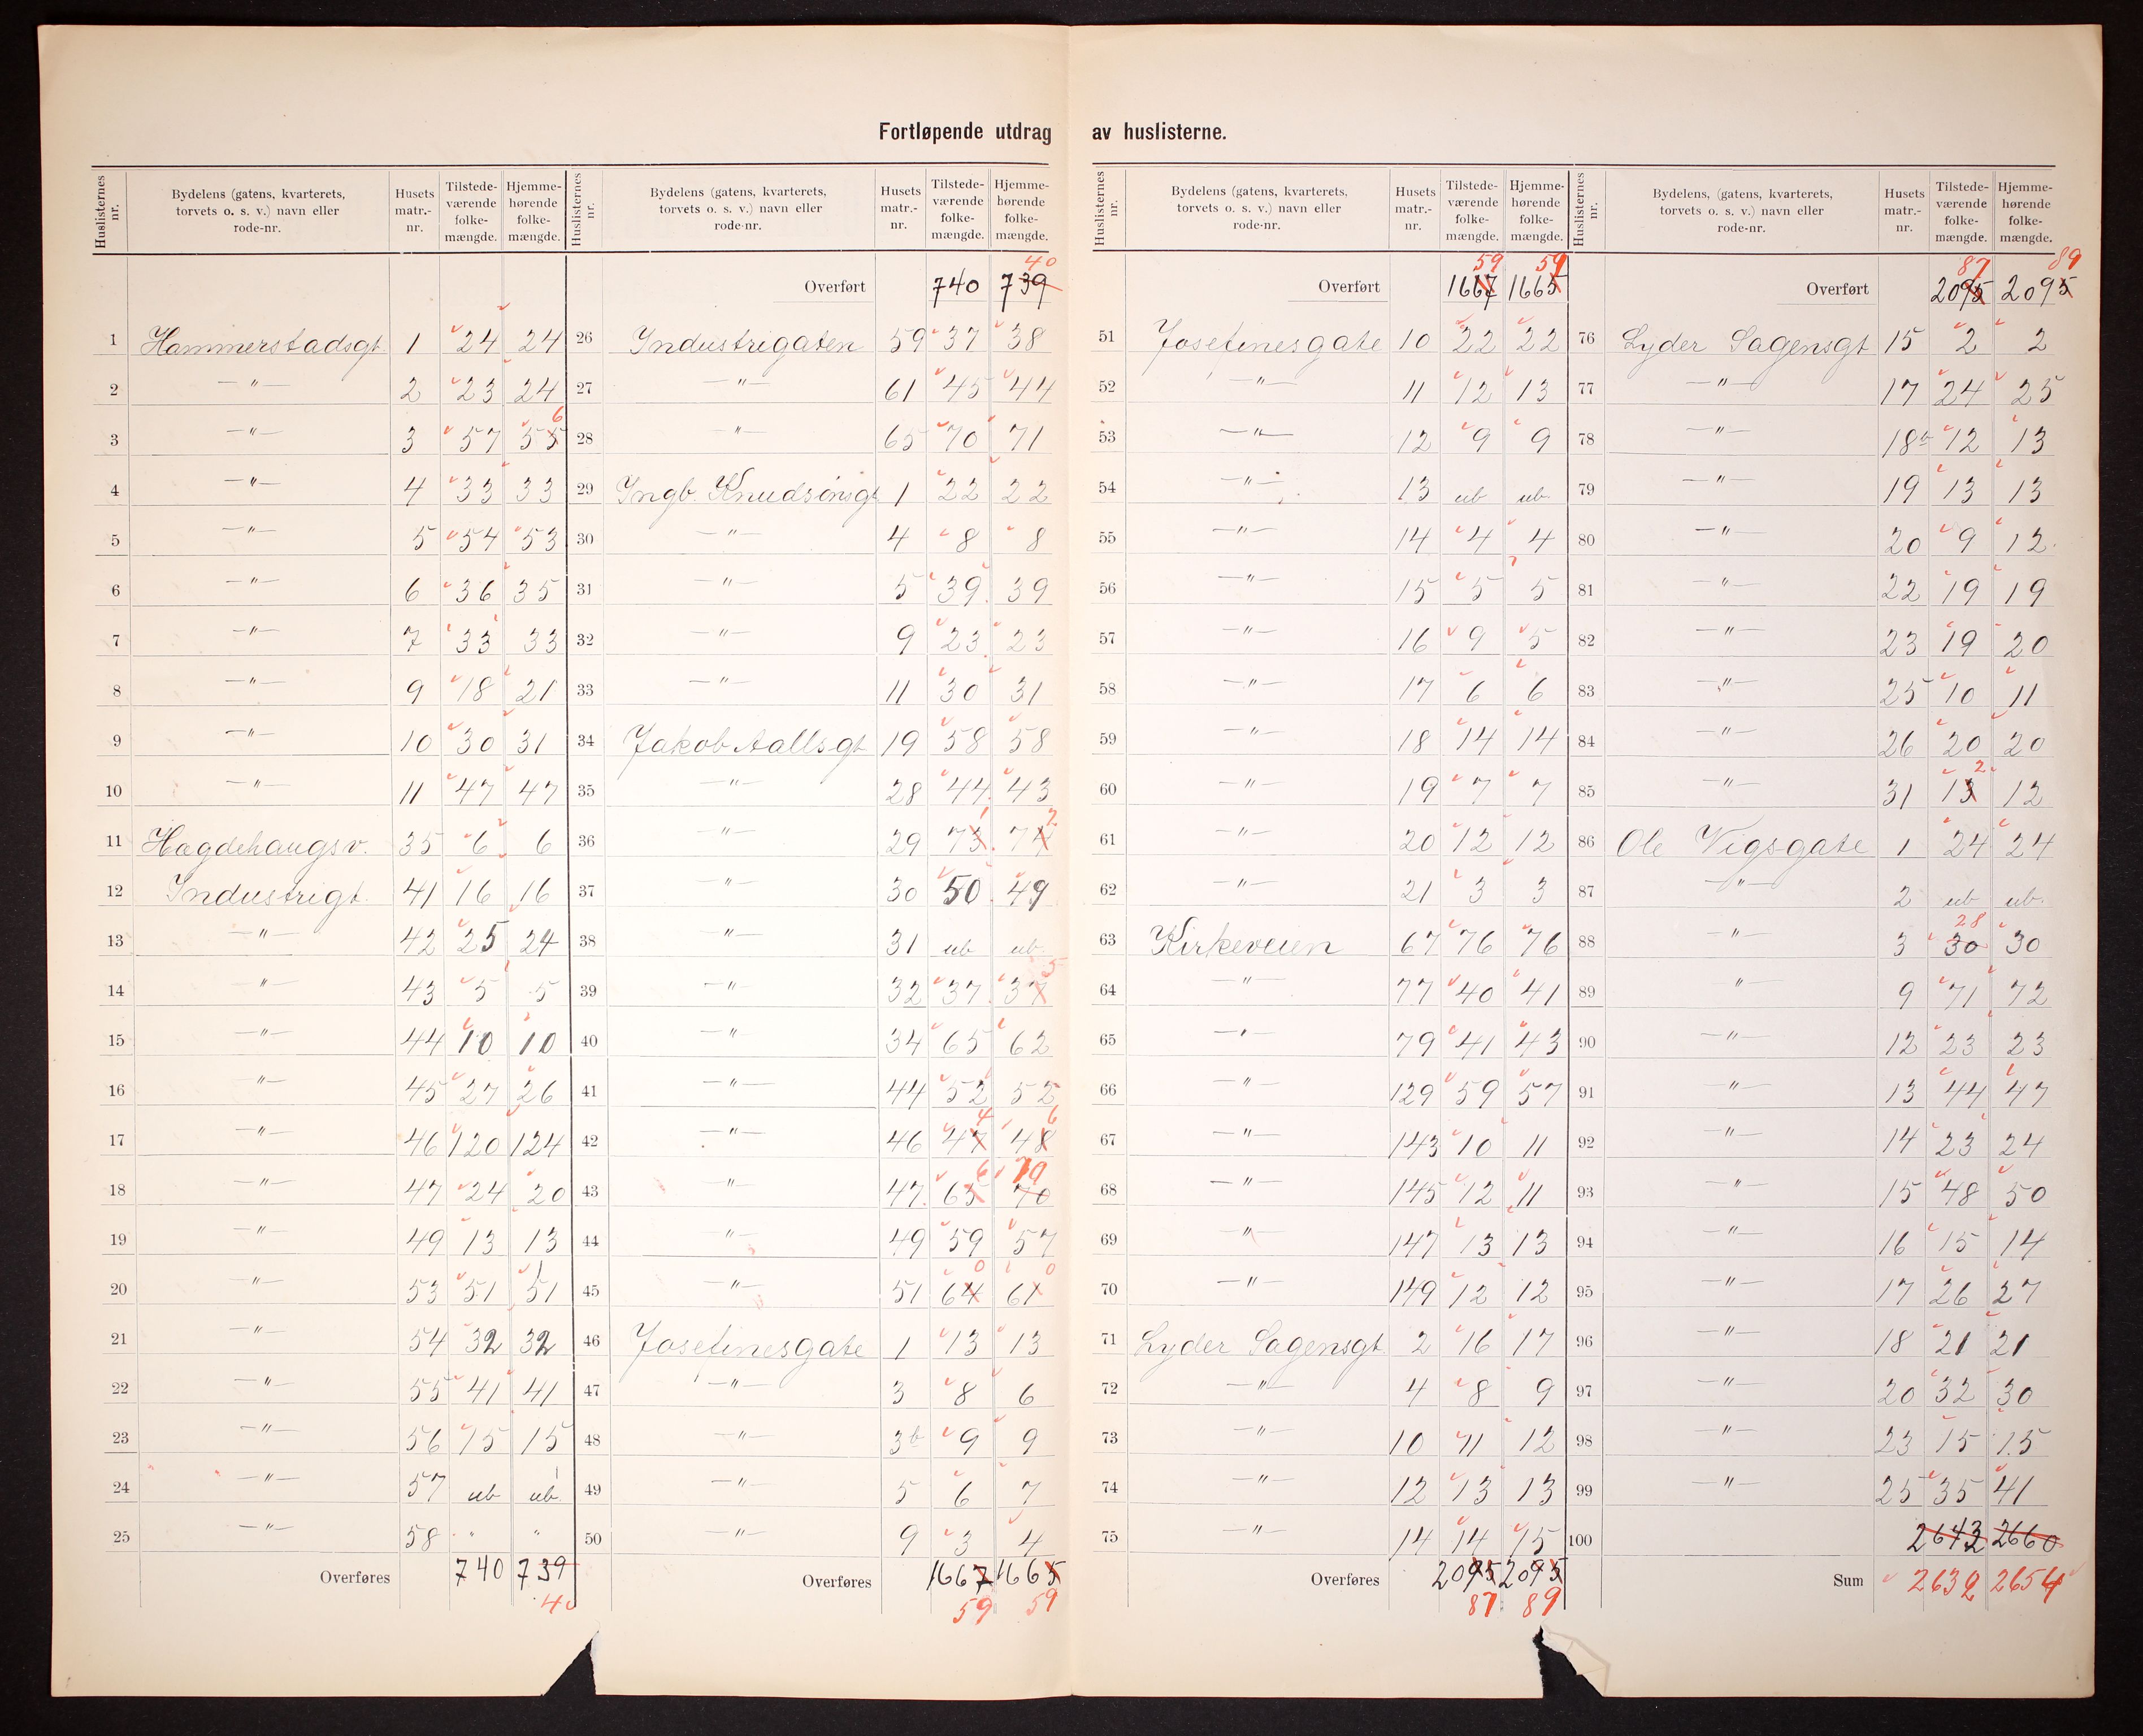 Fortløpende utdrag av huslisterne.
Huslisternes nr. Bydelens (gatens, kvarterets, torvets o. s. v.) navn eller rode-nr. Husets matr.-nr. Tilstedeværende folkemængde. Hjemmehørende folkemængde.
1 Hammerstadsgt. 1 24 24
2 —"— 2 23 24
3 —"— 3 57 55 6
4 —"— 4 33 33
5 —"— 5 54 53
6 —"— 6 36 35
7 —"— 7 33 33
8 —"— 9 18 21
9 —"— 10 30 31
10 —"— 11 47 47
11 Hægdehaugsv. 35 6 6
12 Industrigt. 41 16 16
13 —"— 42 25 24
14 —"— 43 5 5
15 —"— 44 10 10
16 —"— 45 27 26
17 —"— 46 120 124
18 —"— 47 24 20
19 —"— 49 13 13
20 —"— 53 51 51
21 —"— 54 32 32
22 —"— 55 41 41
23 —"— 56 15 15
24 —"— 57 ub ub.
25 —"— 58 " "
Overføres 740 739
40
Huslisternes nr. Bydelens (gatens, kvarterets, torvets o. s. v.) navn eller rode-nr. Husets matr.-nr. Tilstedeværende folkemængde. Hjemmehørende folkemængde.
40
Overført 740 739
26 Industrigaten 59 37 38
27 —"— 61 45 44
28 —"— 65 70 71
29 Ingb. Knudsønsgt 1 22 22
30 —"— 4 8 8
31 —"— 5 39 39
32 —"— 9 23 23
33 —"— 11 30 31
34 Jakob Aallsgt 19 58 58
35 —"— 28 44 43
36 —"— 29 73 1 74 2
37 —"— 30 50 49
38 —"— 31 ub ub
39 —"— 32 37 37 5
40 —"— 34 65 62
41 —"— 44 52 52
42 —"— 46 47 4 48 6
43 —"— 47 65 6 70 70
44 —"— 49 59 57
45 —"— 51 64 0 61 0
46 Josefinesgate 1 13 13
47 —"— 3 8 6
48 —"— 3b 9 9
49 —"— 5 6 7
50 —"— 9 3 4
Overføres 1667 1665
59 59
Huslisternes nr. Bydelens (gatens, kvarterets, torvets o. s. v.) navn eller rode-nr. Husets matr.-nr. Tilstedeværende folkemængde. Hjemmehørende folkemængde.
59 59
Overført 1667 1665
51 Josefinesgate 10 22 22
52 —"— 11 12 13
53 —"— 12 9 9
54 —"— 13 ub ub.
55 —"— 14 4 4
56 —"— 15 5 5
57 —"— 16 9 5
58 —"— 17 6 6
59 —"— 18 14 14
60 —"— 19 7 7
61 —"— 20 12 12
62 —"— 21 3 3
63 Kirkeveien 67 76 76
64 —"— 77 40 41
65 —"— 79 41 43
66 —"— 129 59 57
67 —"— 143 10 11
68 —"— 145 12 11
69 —"— 147 13 13
70 —"— 149 12 12
71 Lyder Sagensgt. 2 16 17
72 —"— 4 8 9
73 —"— 10 11 12
74 —"— 12 13 13
75 —"— 14 14 15
Overføres 2095 2095
87 89
Huslisternes nr. Bydelens, (gatens, kvarterets, torvets o. s. v.) navn eller rode-nr. Husets matr.-nr. Tilstedeværende folkemængde. Hjemmehørende folkemængde.
87 89
Overført 2095 2095
76 Lyder Sagensgt 15 2 2
77 —"— 17 24 25
78 —"— 18b 12 13
79 —"— 19 13 13
80 —"— 20 9 12
81 —"— 22 19 19
82 —"— 23 19 20
83 —"— 25 10 11
84 —"— 26 20 20
85 —"— 31 13 2 12
86 Ole Vigsgate 1 24 24
87 —"— 2 ub ub.
88 —"— 3 30 28 30
89 " 9 71 72
90 —"— 12 23 23
91 —"— 13 44 47
92 —"— 14 23 24
93 —"— 15 48 50
94 —"— 16 15 14
95 —"— 17 26 27
96 —"— 18 21 21
97 —"— 20 32 30
98 —"— 23 15 15
99 —"— 25 35 41
100 2643 2660
Sum 2632 2654